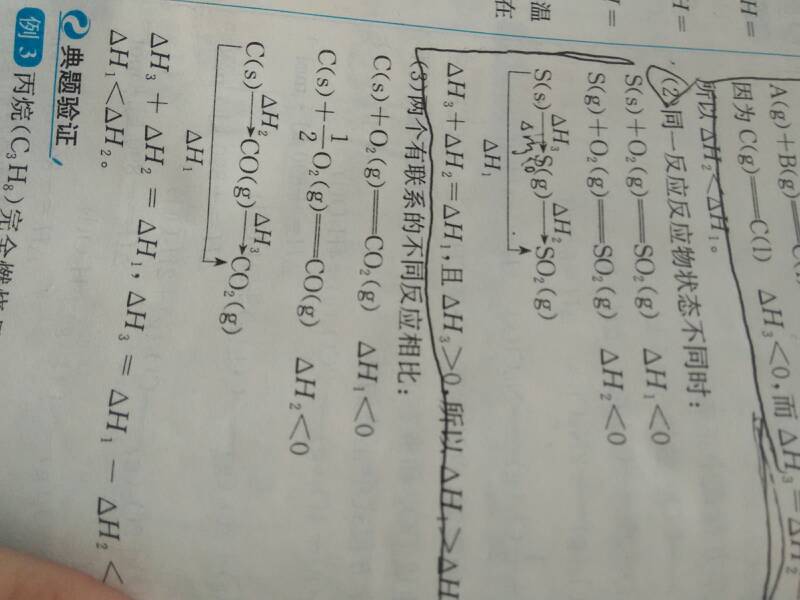 H=
温
H=
在
H=
A(g)+B(g)══
因为 C(g)══C(l) ΔH₃<0,而 ΔH₃=ΔH₂
所以 ΔH₂<ΔH₁。
(2)同一反应反应物状态不同时:
S(s)+O₂(g)══SO₂(g) ΔH₁<0
S(g)+O₂(g)══SO₂(g) ΔH₂<0
ΔH₃ ΔH₂
S(s)→S(g)→SO₂(g)
ΔH₁
ΔH₃+ΔH₂=ΔH₁,且 ΔH₃>0,所以 ΔH₁>ΔH
(3)两个有联系的不同反应相比:
C(s)+O₂(g)══CO₂(g) ΔH₁<0
C(s)+1/2O₂(g)══CO(g) ΔH₂<0
ΔH₂ ΔH₃
C(s)→CO(g)→CO₂(g)
ΔH₁
ΔH₃+ΔH₂=ΔH₁,ΔH₃=ΔH₁-ΔH₂<
ΔH₁<ΔH₂。
典题验证
例3 丙烷(C₃H₈)完全燃烧